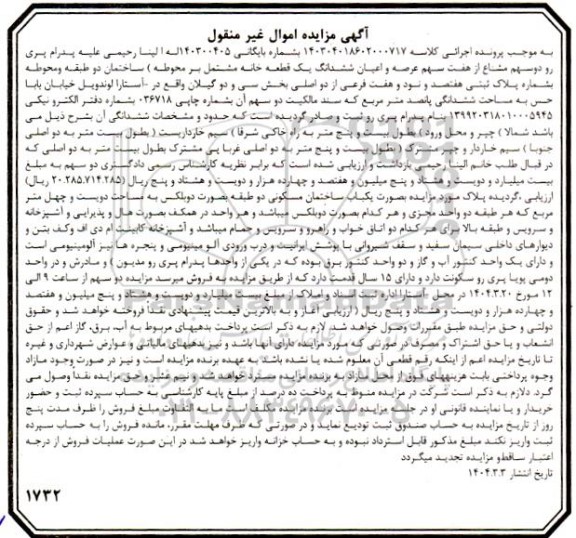 آگهی مزایده اموال غیر منقول
به موجب پرونده اجرائی کلاسه ۱۴۰۳۰۴۰۱۸۶۰۲۰۰۰۷۱۷ بشماره بایگانی ۱۴۰۳۰۰۴۰۵له ا لینا رحیمی علیه پدرام پری
رو دوسهم مشاع از هفت سهم عرصه و اعیان ششدانگ یک قطعه خانه مشتمل بر محوطه ) ساختمان دو طبقه ومحوطه
بشماره پلاک ثبتی هفتصد و نود و هفت فرعی از دو اصلی بخش سی و دو گیلان واقع در -آستارا لوندویل خیابان بابا
حس به مساحت ششدانگی پانصد متر مربع که سند مالکیت دو سهم آن بشماره چاپی ۰۳۶۷۱۸ بشماره دفتر الکترو نیکی
۱۳۹۹۲۰۳۱۸۰۱۰۰۰۵۹۴۵ بنام پدرام پری رو ثبت و صادر گردیده است که حدود و مشخصات ششدانگی آن بشرح ذیل می
باشد شمالا ) چپر و محل ورود ) بطول بیست و پنج متر به راه خاکی شرقا ) سیم خارداریست ( بطول بیست متر به دو اصلی
جنوبا ) سیم خاردار و چپر مشترک ( بطول بیست و پنج متر به دو اصلی غربا پی مشترک بطول بیست متر به دو اصلی که
در قبال طلب خانم الینا رحیمی بازداشت و ارزیابی شده است که برابر نظریه کارشناس رسمی دادگستری دو سهم به مبلغ
بیست میلیارد و دویست و هشتاد و پنج میلیون و هفتصد و چهارده هزار و دویست و هشتاد و پنج ریال (۲۰.۲۸۵.۷۱۴.۲۸۵ ریال)
ارزیابی .گردیده پلاک مورد مزایده بصورت یکباب ساختمان مسکونی دو طبقه بصورت دوبلکس به مساحت دویست و چهل متر
مربع که هر طبقه دو واحد مجزی و هر کدام بصورت دوبلکس میباشد و هر واحد در همکف بصورت هال و پذیرایی و آشپزخانه
و سرویس و طبقه بالا بری هر کدام دو اتاق خواب و راهرو و سرویس و حمام میباشد و آشپزخانه کابینت ام دی اف وکف بتن و
دیوارهای داخلی سیمان سفید و سقف شیروانی با پوشش ایرانیت و درب ورودی آلو مینیومی و پنجره ها نیز آلومینیومی است
و دارای یک واحد کنتور آب و گاز و دو واحد کنتور برق بوده که در یکی از واحدها پدرام پری رو مدیون ) و مادرش و در واحد
دومی پویا پری رو سکونت دارد و دارای ۱۵ سال قدمت دارد که از طریق مزایده به فروش میرسد مزایده دو سهم از ساعت ۹ الی
۱۲ مورخ ۱۴۰۴.۳.۲۰ در محل آستارا اداره ثبت اسناد و املاک از مبلغ بیست میلیارد و دویست و هشتاد و پنج میلیون و هفتصد
و چهارده هزار و دویست و هشتاد و پنج ریال ( ارزیابی آغاز و به بالاترین قیمت پیشنهادی نقدا فروخته خواهد شد و حقوق
دولتی و حق مزایده طبق مقررات وصول خواهد شد. لازم به ذکر است پرداخت بدهیهای مربوط به آب، برق، گاز اعم از حق
انشعاب و یا حق اشتراک و مصرف در صورتی که مورد مزایده دارای آنها باشد و نیز بدهیهای مالیاتی و عوارض شهرداری و غیره
تا تاریخ مزایده اعم از اینکه رقم قطعی آن معلوم شده یا نشده باشد به عهده برنده مزایده است و نیز در صورت وجود مازاد
وجوه پرداختی بابت هزینههای فوق از محل مازاد به برنده مزایده مسترد خواهد شد و نیم عشر و حق مزایده نقداً وصول می
گرد. دلازم به ذکر است شرکت در مزایده منوط به پرداخت ده درصد از مبلغ پایه کارشناسی به حساب سپرده ثبت و حضور
خریدار و یا نماینده قانونی او در جلسه مزایده است برنده مزایده مکلف است مابه التفاوت مبلغ فروش را ظرف مدت پنج
روز از تاریخ مزایده به حساب صندوق ثبت تودیع نماید و در صورتی که ظرف مهلت مقرر، مانده فروش را به حساب سپرده
ثبت واریز نکند مبلغ مذکور قابل استرداد نبوده و به حساب خزانه واریز خواهد شد در این صورت عملیات فروش از درجه
اعتبار ساقطو مزایده تجدید میگردد
تاریخ انتشار ۱۴۰۴.۳.۳
۱۷۳۲